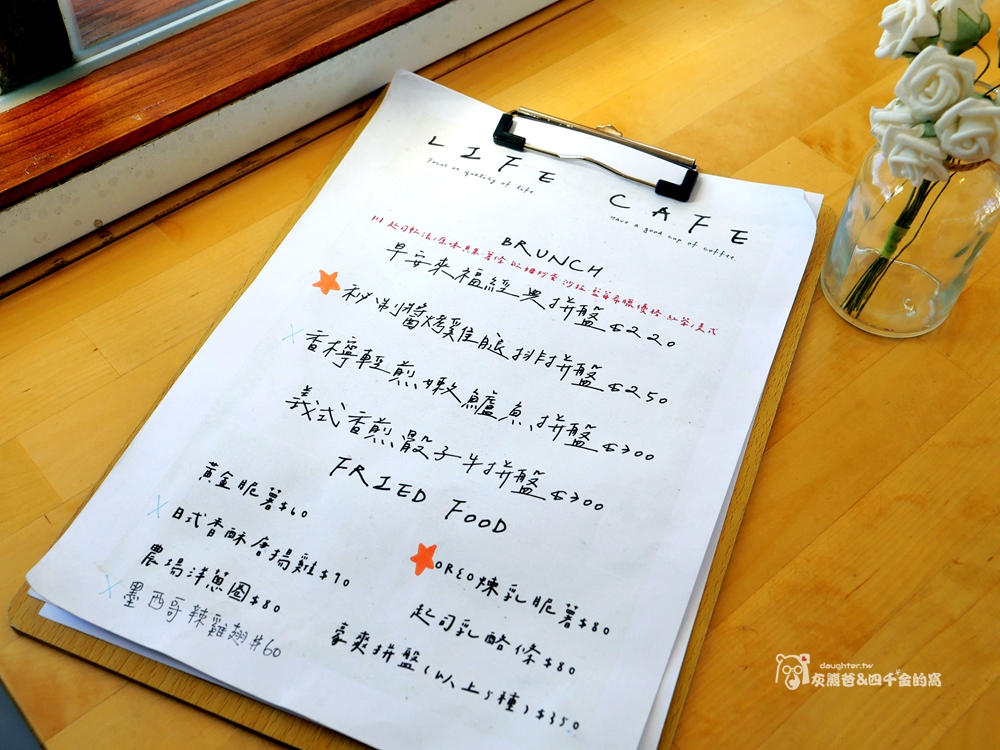 LIFE CAFE
Focus on quality of life.
Have a good cup of coffee.
BRUNCH
早安來福經典拼盤 $220
秘制醬烤雞腿排拼盤 $250
香檸輕煎嫩鱸魚拼盤 $300
義式香煎骰子牛拼盤 $300
FRIED FOOD
黃金脆薯 $60
日式香酥唐揚雞 $70
農場洋蔥圈 $80
墨西哥辣雞翅 $60
OREO煉乳脆薯 $80
起司乳酪條 $80
豪爽拼盤(以上5種) $350
daughter.tw
灰熊爸&四千金的窩